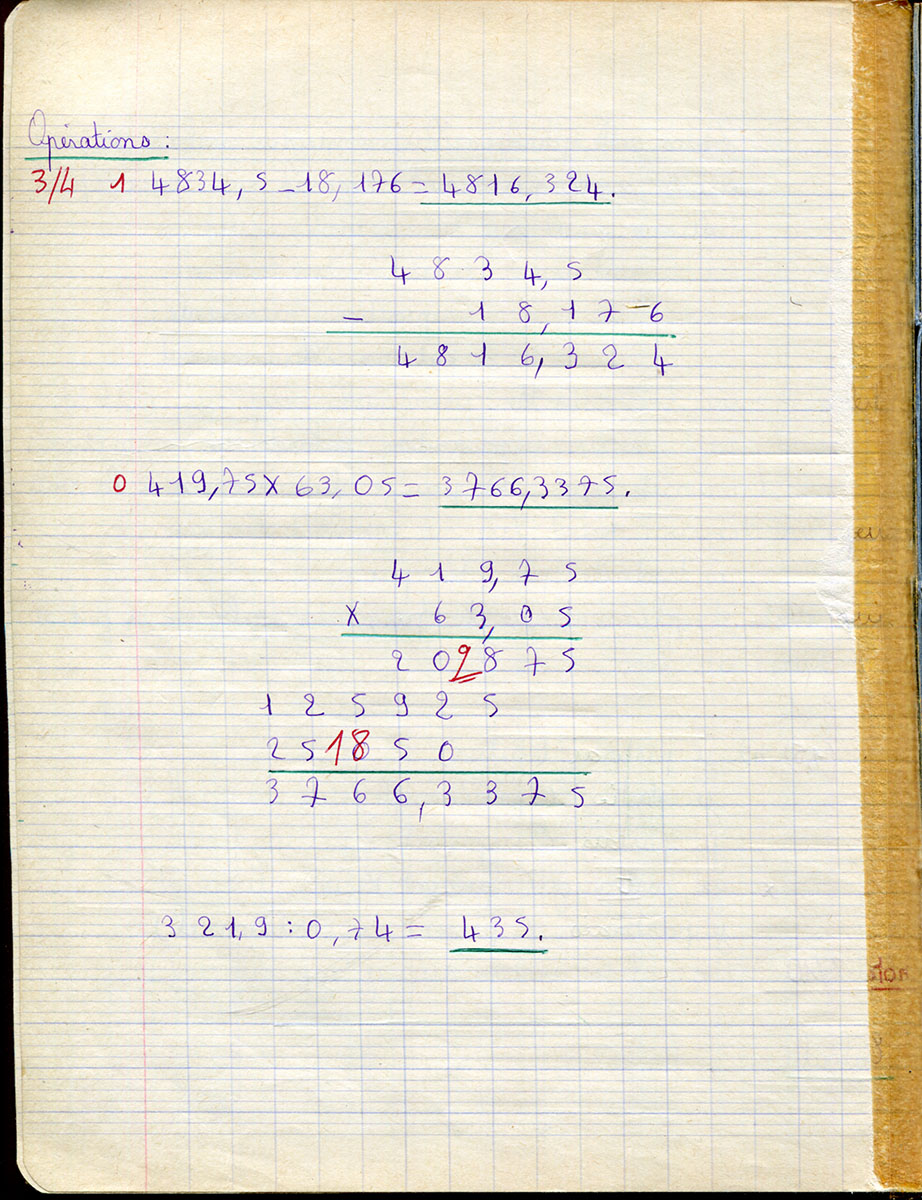 Opérations :
3/4 1 4834,5 - 18,176 = 4816,324.
4834,5
- 18,176
4816,324
0 419,75 x 63,05 = 3766,3375.
419,75
x 63,05
209875
125925
251850
3766,3375
321,9 : 0,74 = 435.